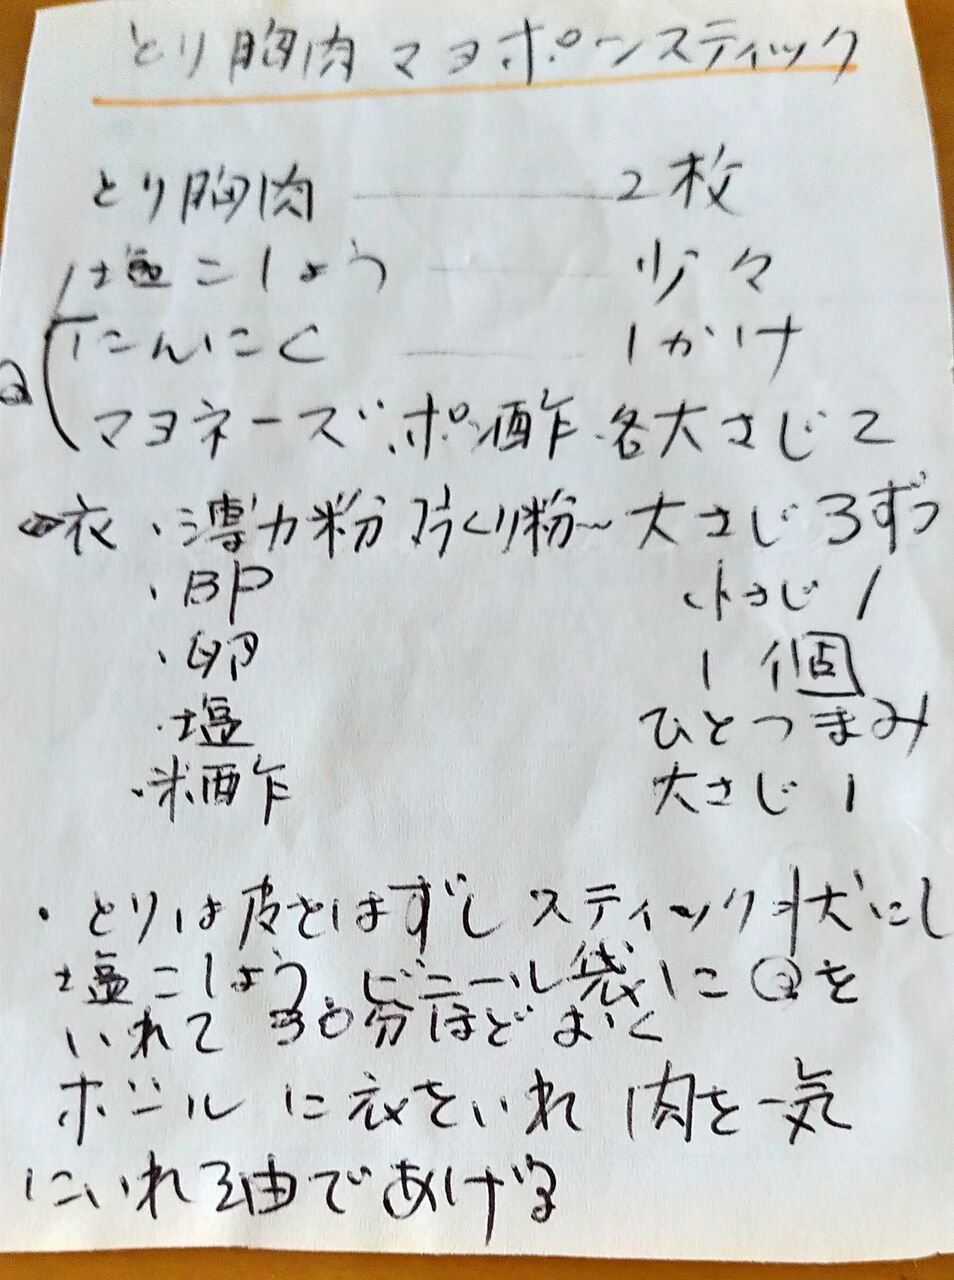 とり胸肉マヨポンスティック
とり胸肉 2枚
塩こしょう 少々
にんにく 1かけ
マヨネーズ、ポン酢 各大さじ2
衣・薄力粉 片くり粉〜大さじ3ずつ
・BP 小さじ1
・卵 1個
・塩 ひとつまみ
・米酢 大さじ1
・とりは皮をはずしスティック状にし
塩こしょう、ビニール袋に@を
いれて30分ほどおく
ボールに衣をいれ肉を一気
にいれ油であげる